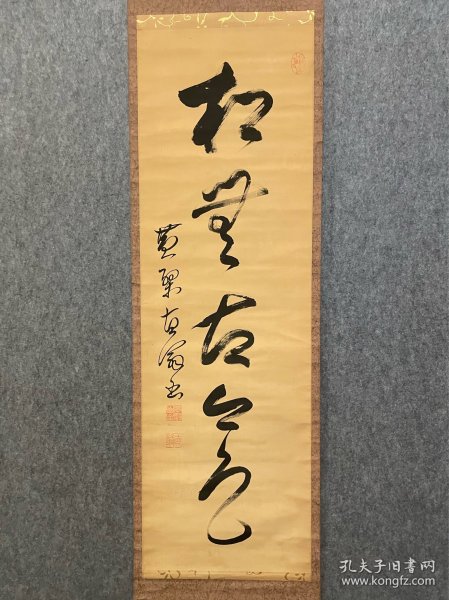 松無古今色
黄檗直翁書
孔夫子旧书网
www.kongfz.com